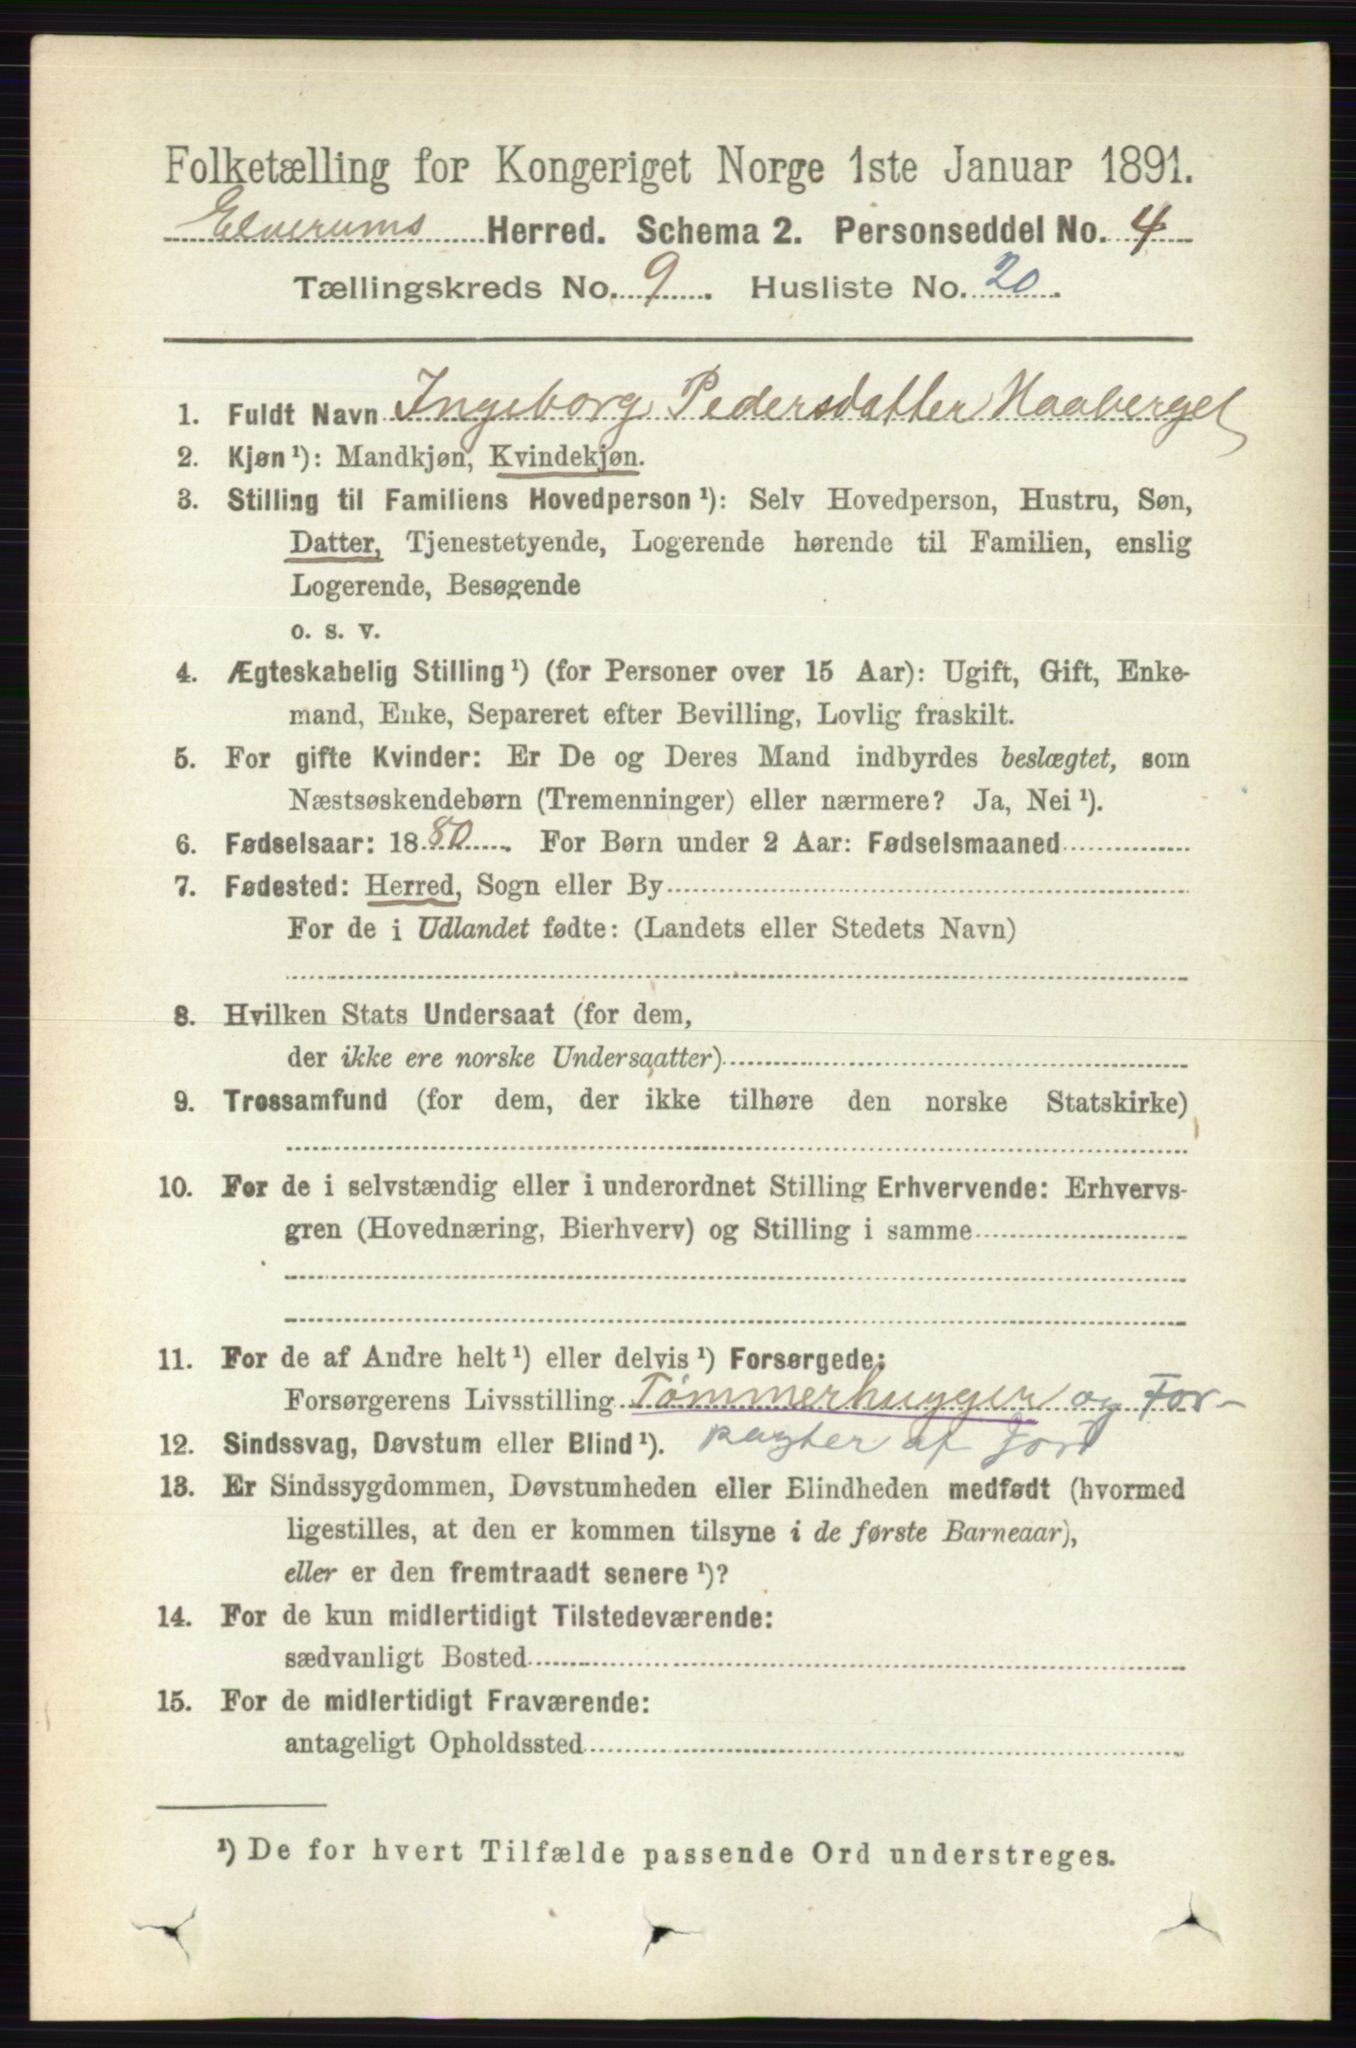 Folketælling for Kongeriget Norge 1ste Januar 1891.
Elverums Herred. Schema 2. Personseddel No. 4
Tællingskreds No. 9. Husliste No. 20.
1. Fuldt Navn Ingeborg Pedersdatter Haaberget
2. Kjøn ¹): Mandkjøn, Kvindekjøn.
3. Stilling til Familiens Hovedperson ¹): Selv Hovedperson, Hustru, Søn,
Datter, Tjenestetyende, Logerende hørende til Familien, enslig
Logerende, Besøgende
o. s. v.
4. Ægteskabelig Stilling ¹) (for Personer over 15 Aar): Ugift, Gift, Enke-
mand, Enke, Separeret efter Bevilling, Lovlig fraskilt.
5. For gifte Kvinder: Er De og Deres Mand indbyrdes beslægtet, som
Næstsøskendebørn (Tremenninger) eller nærmere? Ja, Nei ¹).
6. Fødselsaar: 1880. For Børn under 2 Aar: Fødselsmaaned
7. Fødested: Herred, Sogn eller By
For de i Udlandet fødte: (Landets eller Stedets Navn)
8. Hvilken Stats Undersaat (for dem,
der ikke ere norske Undersaatter)
9. Trossamfund (for dem, der ikke tilhøre den norske Statskirke)
10. For de i selvstændig eller i underordnet Stilling Erhvervende: Erhvervs-
gren (Hovednæring, Bierhverv) og Stilling i samme
11. For de af Andre helt ¹) eller delvis ¹) Forsørgede:
Forsørgerens Livsstilling Tømmerhugger og For-
12. Sindssvag, Døvstum eller Blind ¹). pagter af Jord
13. Er Sindssygdommen, Døvstumheden eller Blindheden medfødt (hvormed
ligestilles, at den er kommen tilsyne i de første Barneaar),
eller er den fremtraadt senere ¹)?
14. For de kun midlertidigt Tilstedeværende:
sædvanligt Bosted
15. For de midlertidigt Fraværende:
antageligt Opholdssted
¹) De for hvert Tilfælde passende Ord understreges.